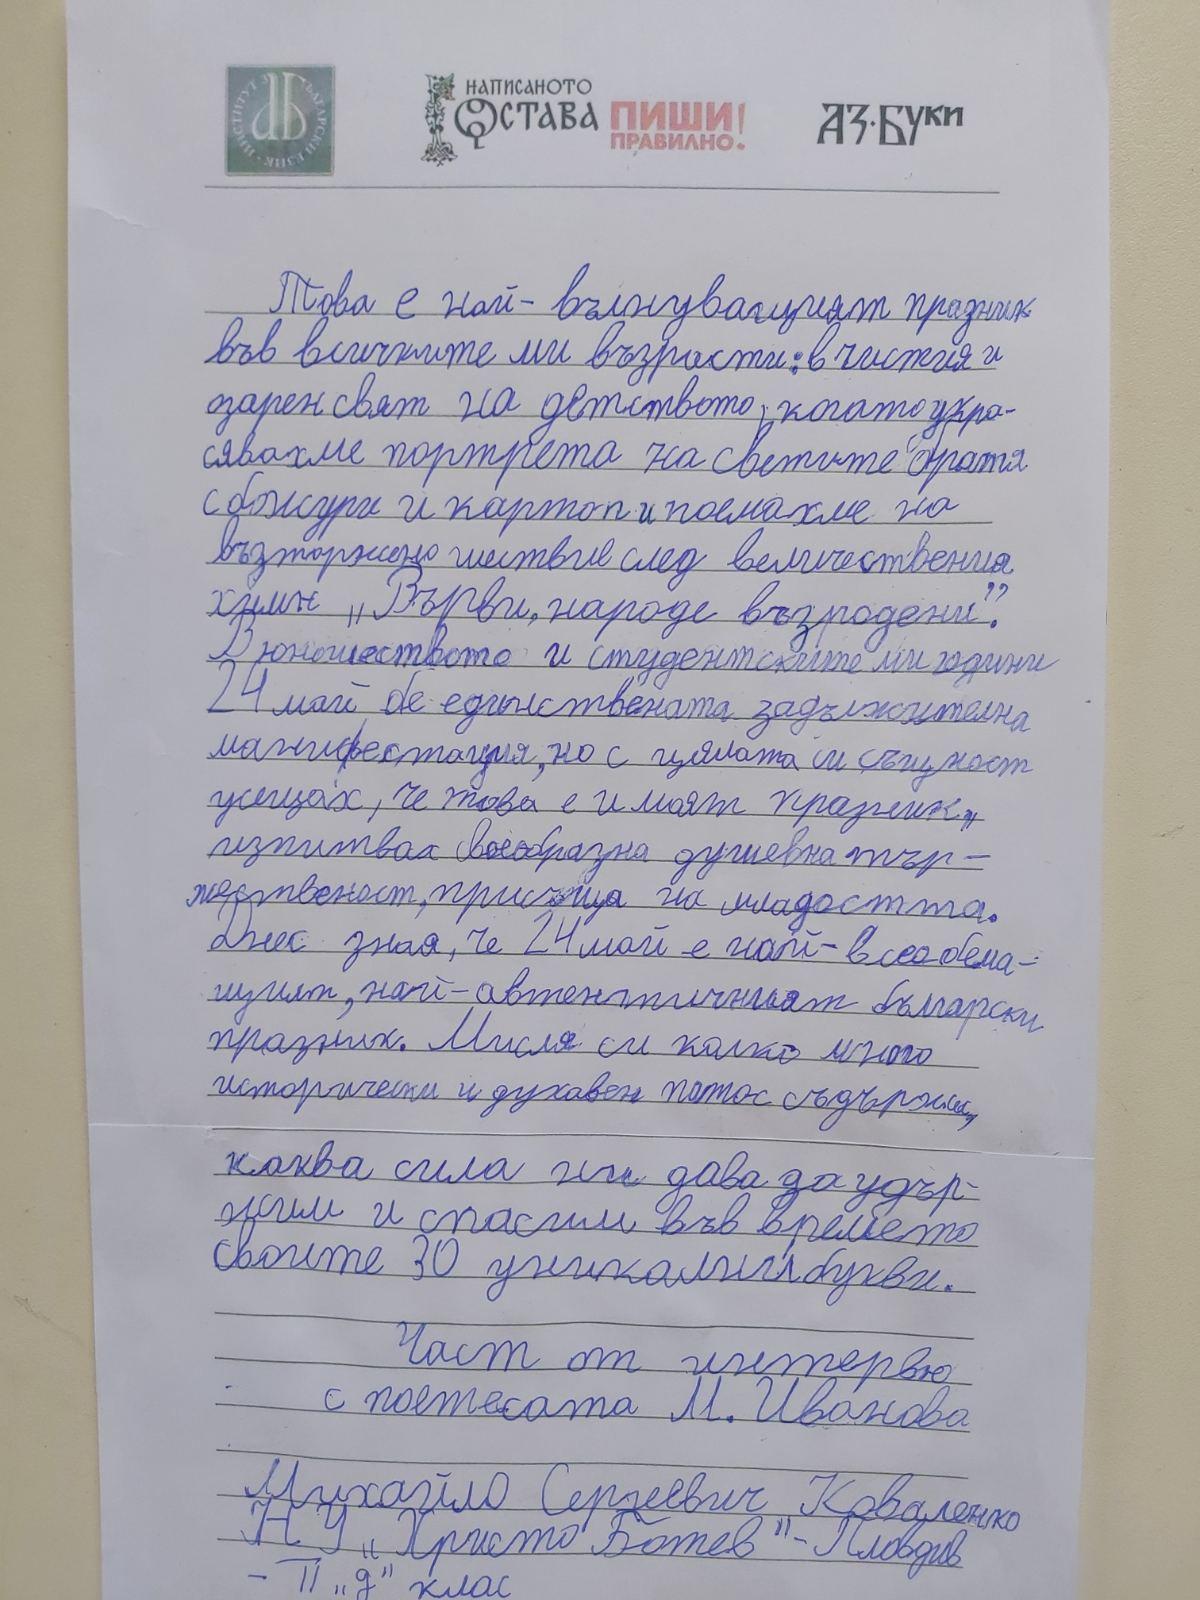 ИНСТИТУТ ЗА БЪЛГАРСКИ ЕЗИК
НАПИСАНОТО
ОСТАВА
ПИШИ!
ПРАВИЛНО.
АЗ·БУКИ
Това е най-вълнуващият празник
във всичките ми възрасти: в чистия и
озарен свят на детството, когато укра-
сявахме портрета на светите братя
с божури и картоп и поемахме на
възторжено шествие след величествения
химн „Върви, народе възродени".
В юношеството и студентските ми години
24 май бе единствената задължителна
манифестация, но с цялата си същност
усещах, че това е и моят празник,
изпитвах своеобразна душевна тър-
жественост, присъща на младостта.
Днес зная, че 24 май е най-всеобема-
щият, най-автентичният български
празник. Мисля си колко много
исторически и духовен патос съдържа,
каква сила ни дава да удър-
жим и спасим във времето
своите 30 уникални букви.
Част от интервю
с поетесата М. Иванова
Михайло Сергеевич Коваленко
НУ „Христо Ботев" - Пловдив
- II „д" клас